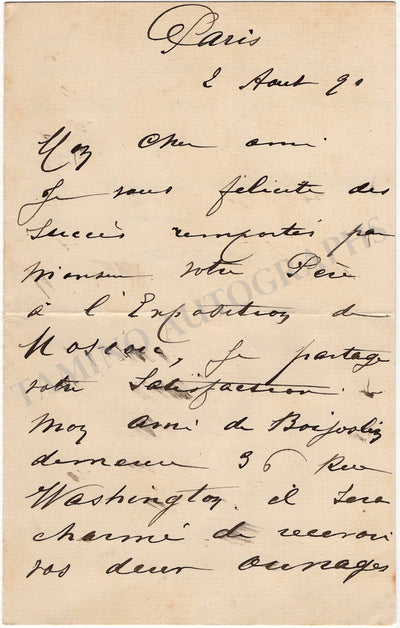 Paris
2 Aout 90
Mon cher ami
Je vous félicite des
succès remportés par
Monsieur votre Père
à l'Exposition de
Moscou, Je partage
votre Satisfaction.
Mon ami de Boisjoslin
demeure 36 Rue
Washington. il sera
charmé de recevoir
vos deux ouvrages
TAMINO AUTOGRAPHS